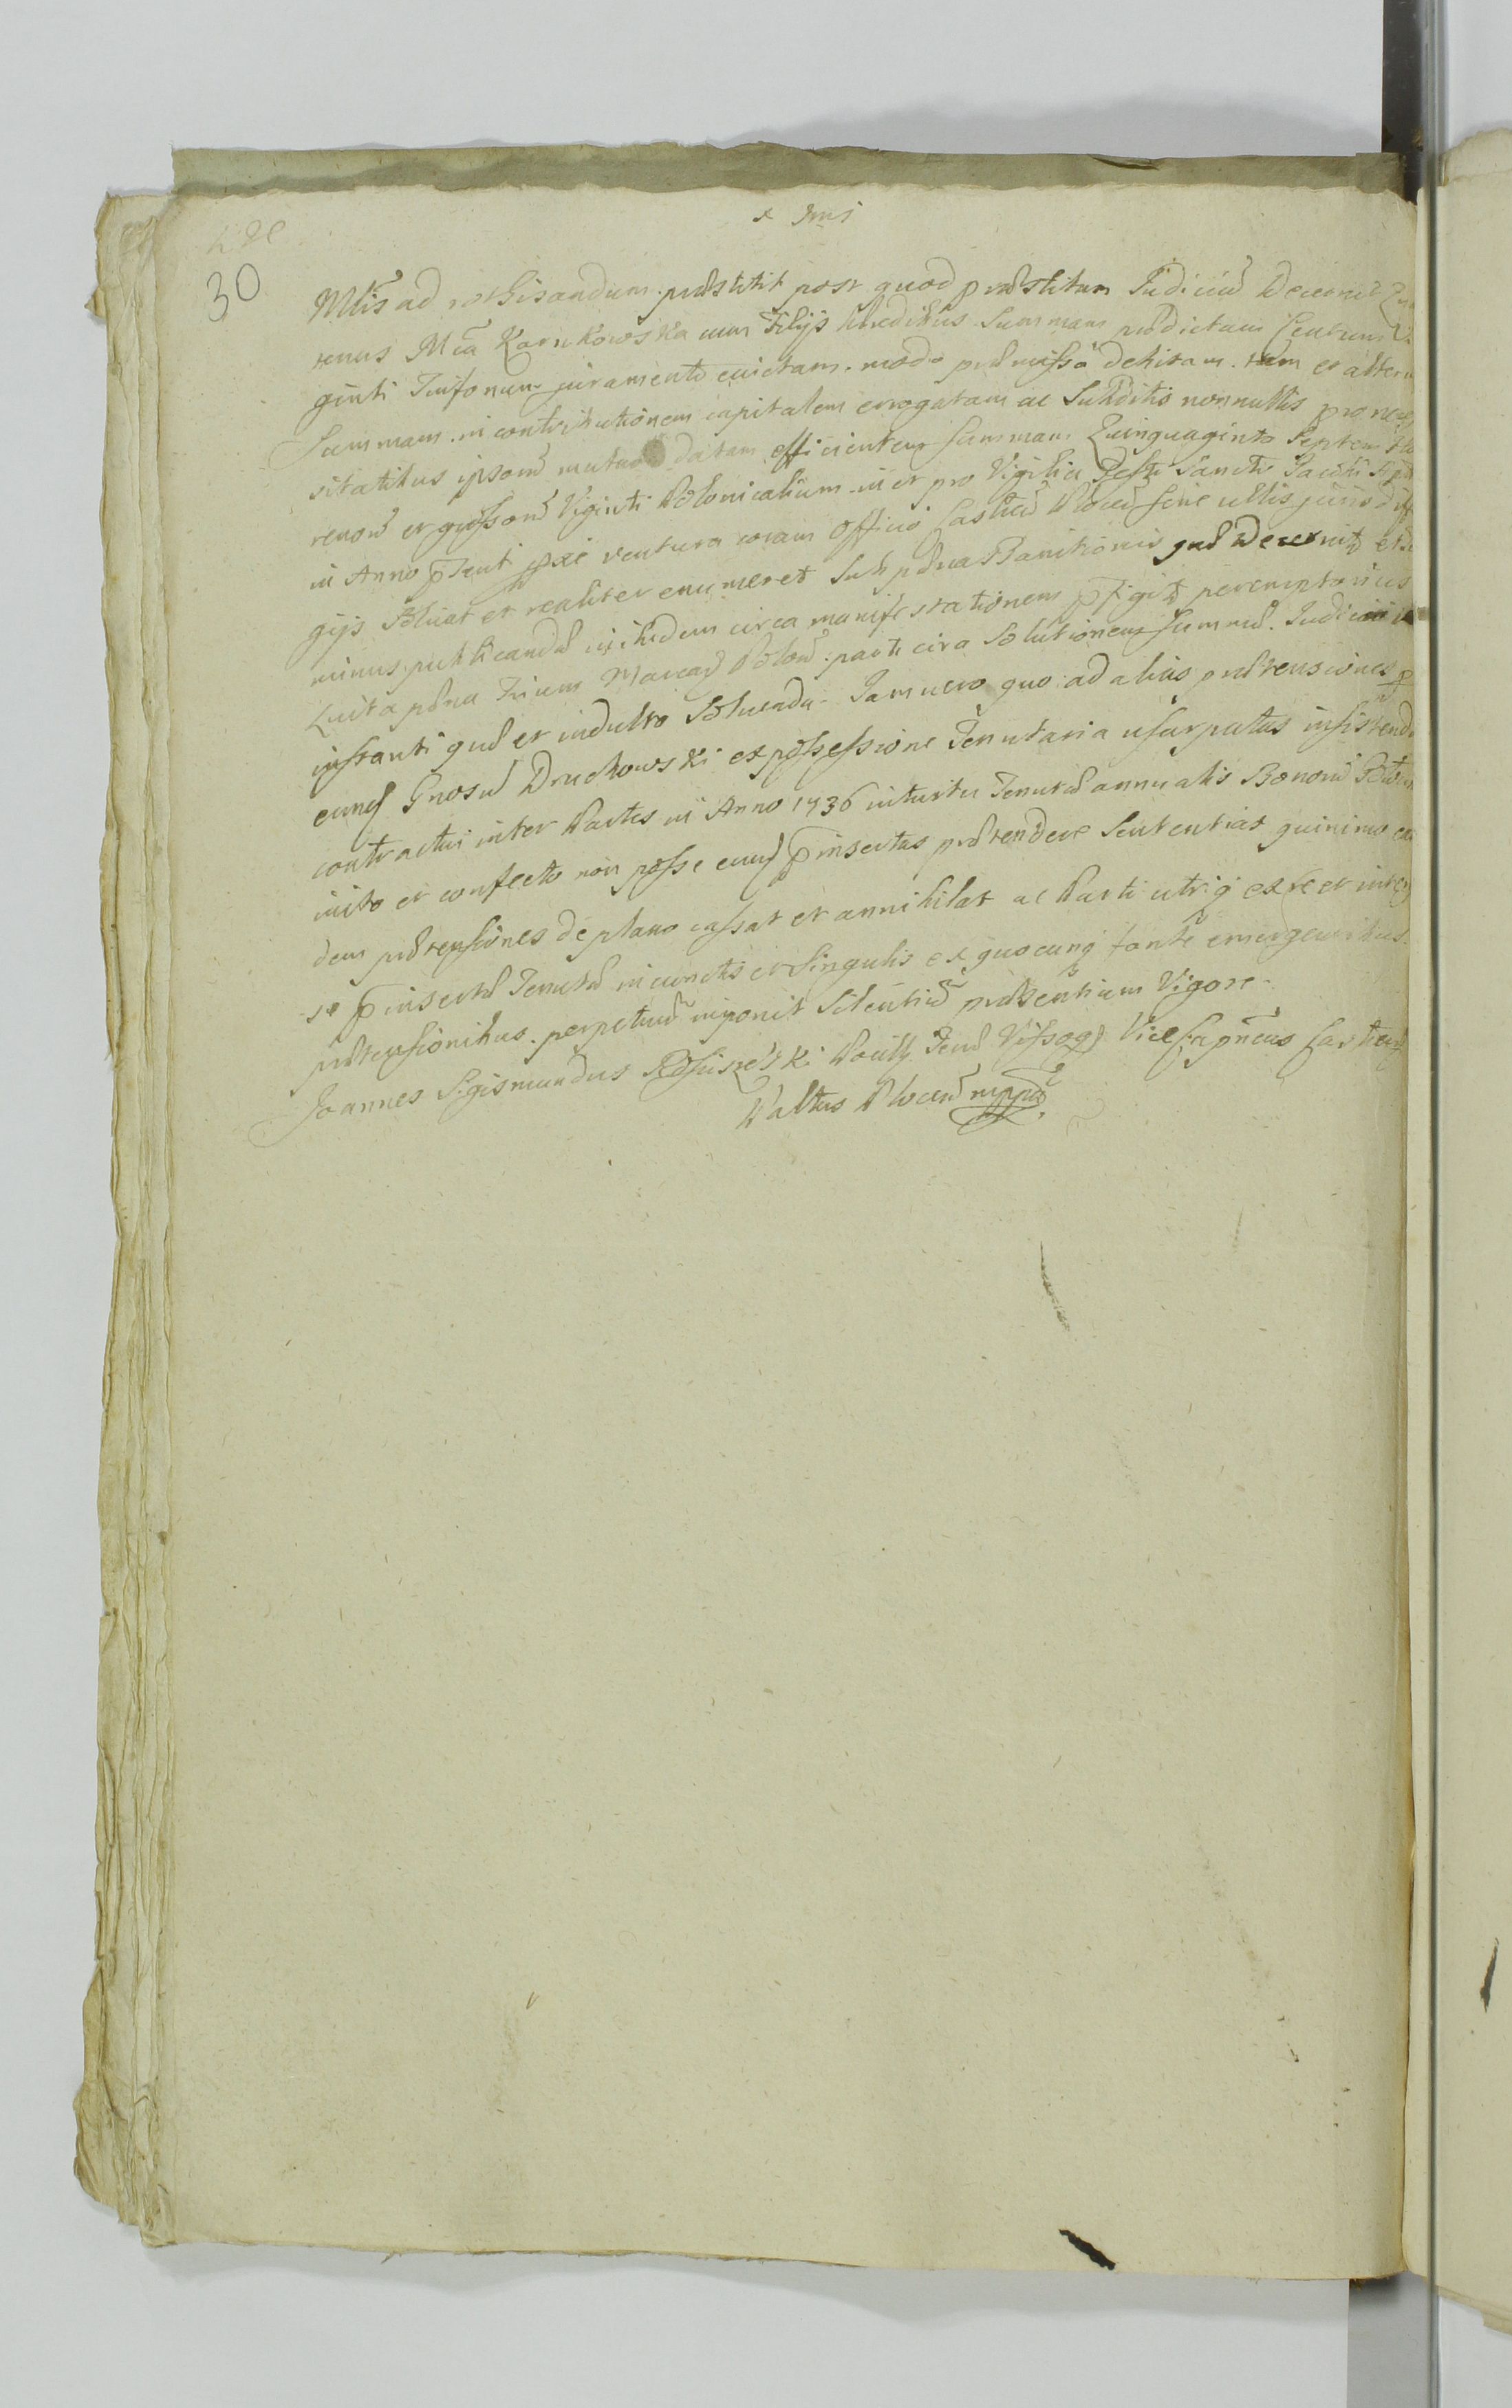 30
Mtis ad rothisandum præstitit post quod præstitum Judiciũ Decernit
tenus Mca Karnkowska cum Filijs hæredibus Summam prædictam Centum
ginti Tinfonum juramento evictam modo præmisso debitam tam et alteram
Summam in contributionem capitalem errogatam ac Subditis nonnullis pro neces
sitatibus ipsorũ mutuo datam efficientem summam Quinquaginta Septem
renorũ et grossorũ Viginti Polonicalium in et pro Vigilia Festi Sancti Jacobi
in Anno pñti pxe ventura coram Officio Castrẽ Plocẽ sine ullis juris
gijs Solvat et realiter enumeret Sub pæna Banitionis quæ Decernit
minus publicandæ ibidem circa manifestationem pfigit peremptorius
Luita pæna Trium Marcarũ Polon. parti circa Solutionem Summæ Judicio
instanti quæ et indulto Solvenda. Jam vero quo ad alias prætensiones
eunds Gnosus Druchowski ex possessione Tenutaria usurpatas insistendo
contractui inter Partes in Anno 1736 intuitu Tenutæ annualis Bonorũ
inito et confecto non posse eund pinsertas prætendere Sententiat quinimo
dem prætensiones de plano cassat et annihilat ac Parti utriq ex re et
se pinsertæ Tenutæ in cunctis et Singulis ex quocunq fonte emergentibus
prætensionibus perpetuũ imponit Silentiũ præsentium Vigore.
Joannes Sigismundus Vice Capneus Castren
Plocen mppa